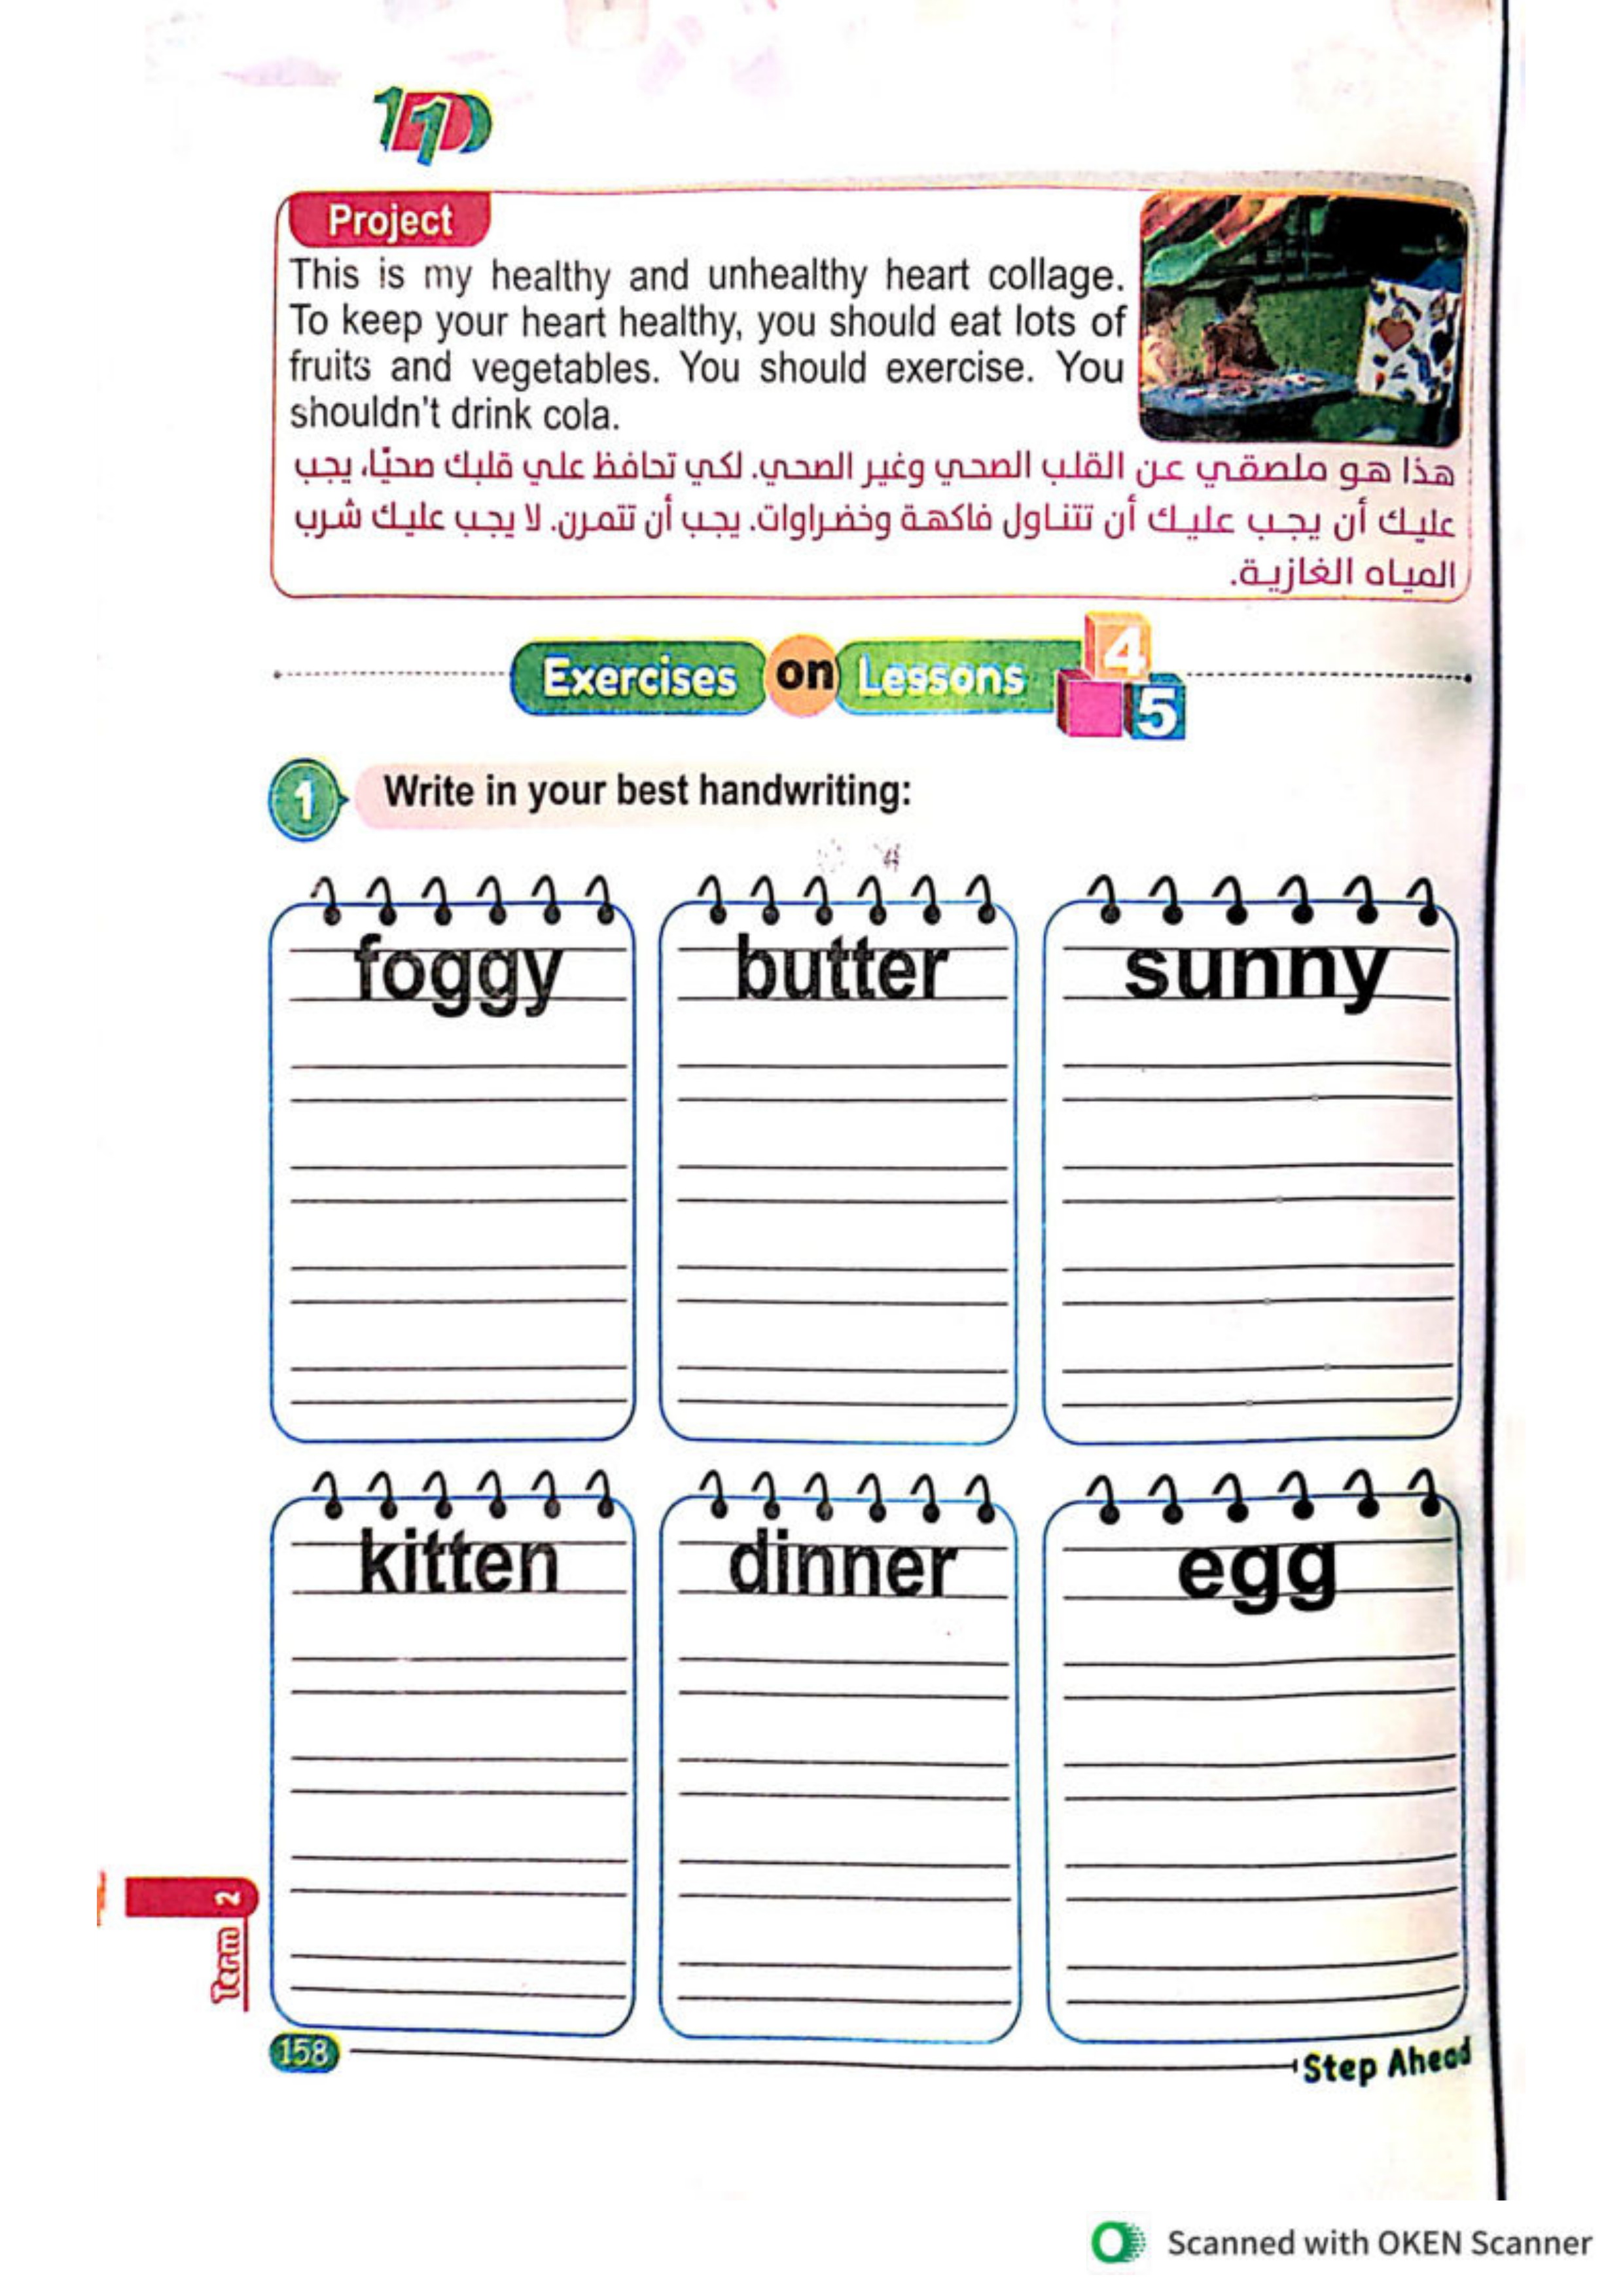 Project
This is my healthy and unhealthy heart collage.
To keep your heart healthy, you should eat lots of
fruits and vegetables. You should exercise. You
shouldn't drink cola.
هذا هو ملصقي عن القلب الصحي وغير الصحي. لكي تحافظ علي قلبك صحيًا، يجب
عليك أن يجب عليك أن تتناول فاكهة وخضراوات. يجب أن تتمرن. لا يجب عليك شرب
المياه الغازية.
Exercises on Lessons 4 5
1 Write in your best handwriting:
foggy butter sunny
kitten dinner egg
Term 2
158 Step Ahead
Scanned with OKEN Scanner